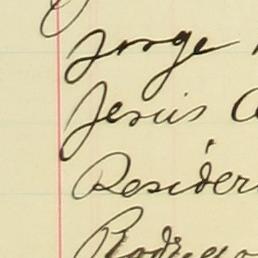 Jorge
Jesús
Resider
Rodrigo